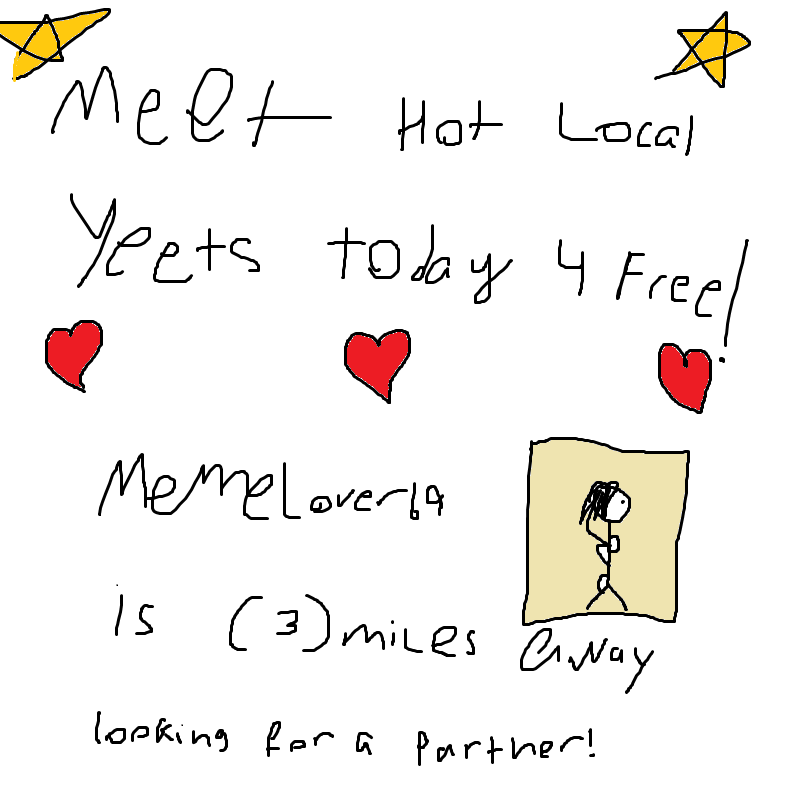 Meet Hot Local
Yeets today 4 Free!
MemeLover69
is (3) miles away
looking for a partner!